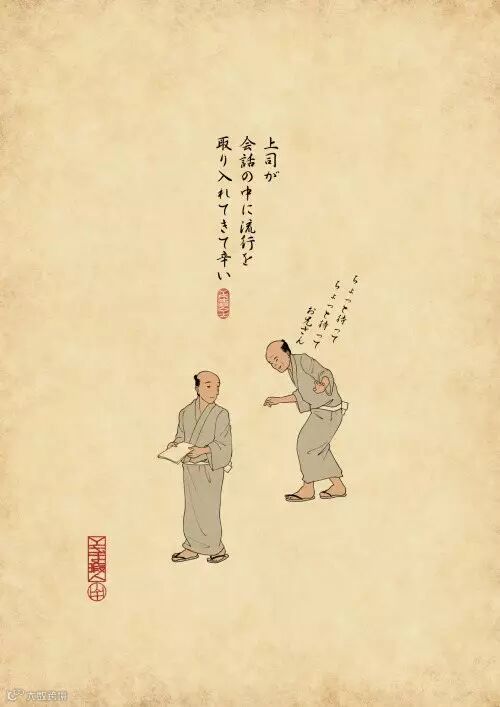 上司が
会話の中に流行を
取り入れてきて辛い
ちょっと待って
ちょっと待って
お兄さん